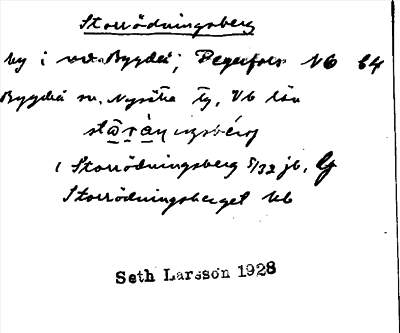 Storrödningsberg
by i v.d. Bygdeå; Degerfors Vb 64
Bygdeå sn, Nysätra tg, Vb län
stǟr̥ànıŋsbérg
1 Storrödningsberg 5/32 jb.
Storrödningsberget kb
Seth Larsson 1928